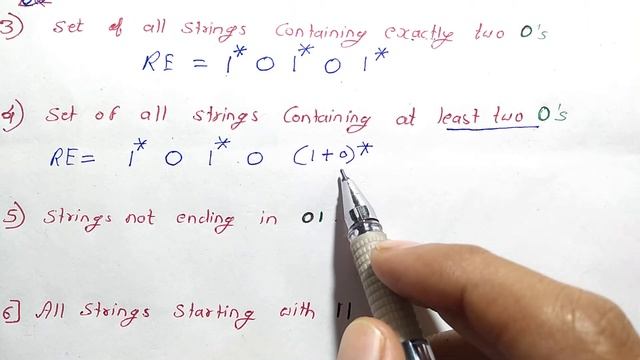 3) Set of all strings Containing exactly two 0's
RE = 1* 0 1* 0 1*
4) Set of all strings Containing at least two 0's
RE= 1* 0 1* 0 (1+0)*
5) Strings not ending in 01
6] All Strings Starting with 11